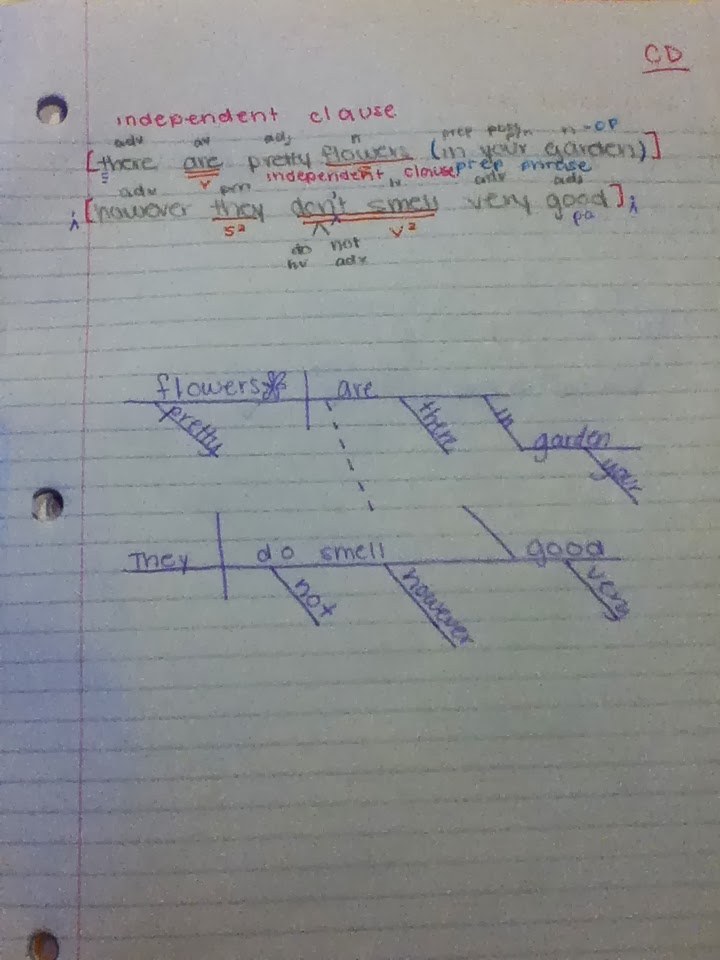 CD
independent clause
adv av adj n prep poss pn n-OP
[there are pretty flowers (in your garden)]
v independent clause prep phrase
adv prn v adv adj
;[however they don't smell very good];
s² v² pa
do not
hv adv
flowers are
pretty there in
garden
your
They do smell good
not however very